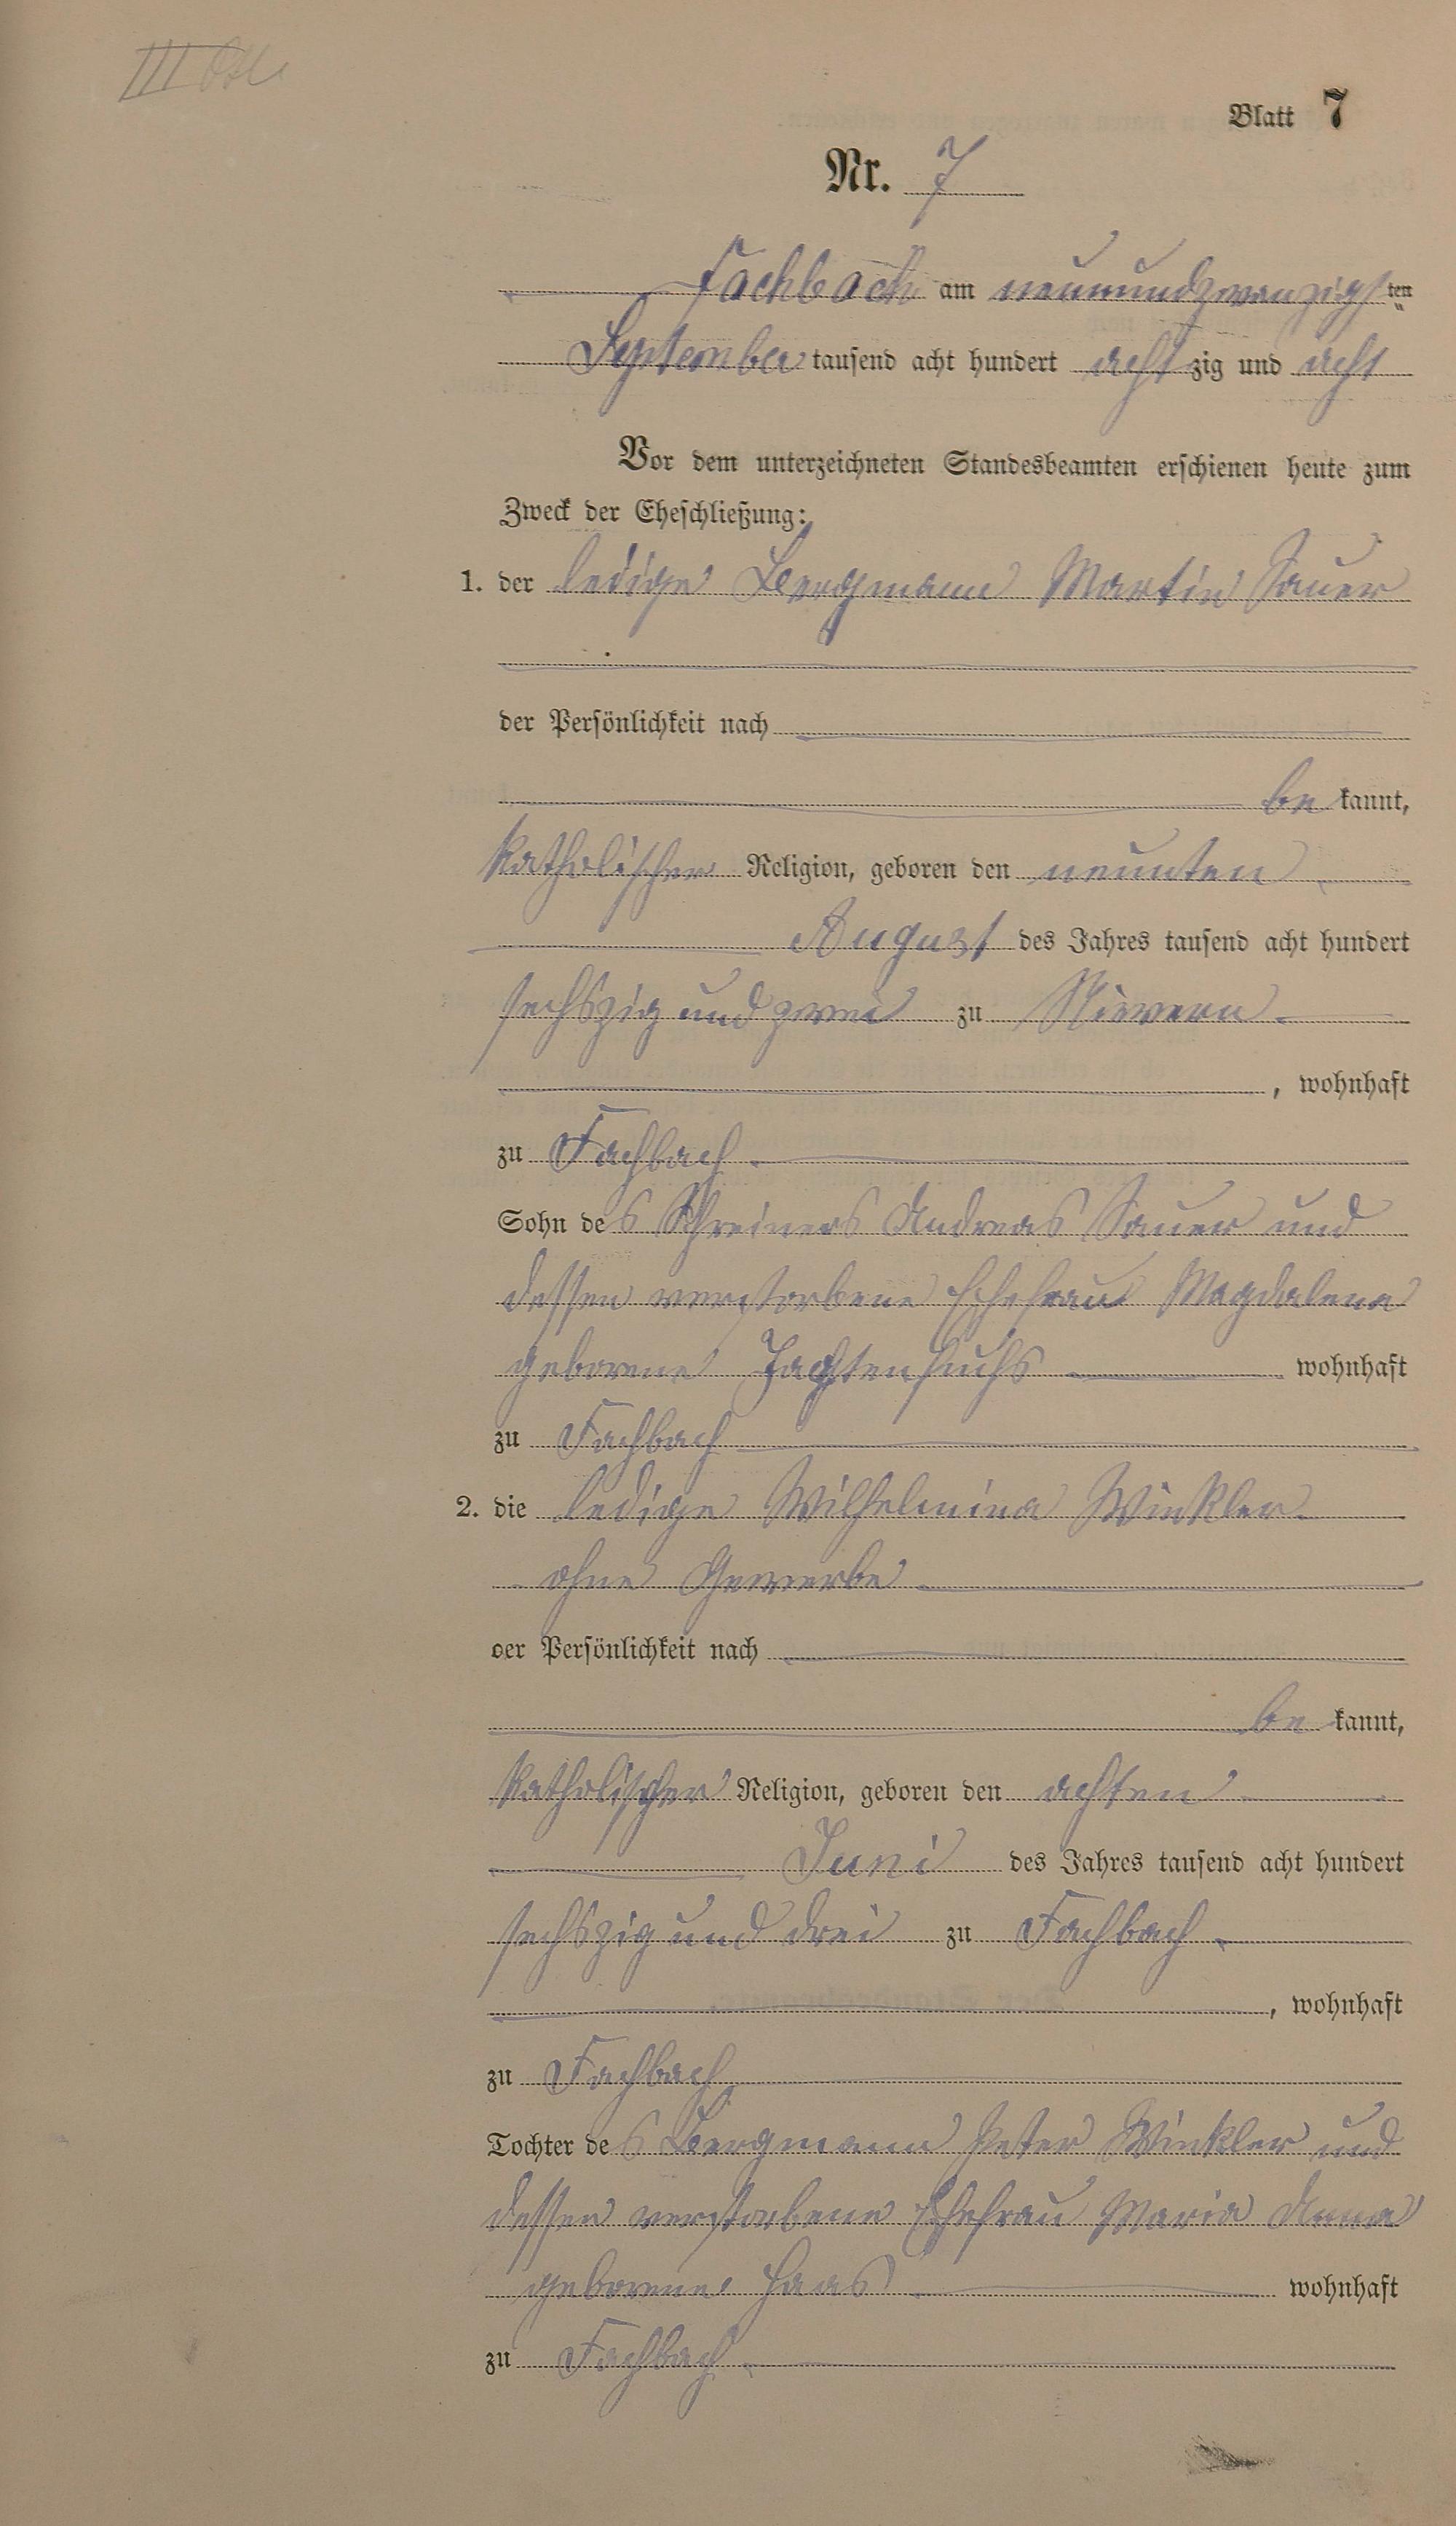 III
Blatt 7
Nr. 7
Fachbach am neunundzwanzigsten
September tausend acht hundert achtzig und acht
Vor dem unterzeichneten Standesbeamten erschienen heute zum
Zweck der Eheschließung:
1. der ledige Bergmann Martin Sauer
der Persönlichkeit nach
be kannt,
katholischer Religion, geboren den neunten
August des Jahres tausend acht hundert
sechszig und zwei zu Nievern
, wohnhaft
zu Fachbach
Sohn des Schreiners Andreas Sauer und
dessen verstorbene Ehefrau Magdalena
geborene wohnhaft
zu Fachbach
2. die ledige Wilhelmina Winkler
ohne Gewerbe
der Persönlichkeit nach
be kannt,
katholischer Religion, geboren den achten
Juni des Jahres tausend acht hundert
sechszig und drei zu Fachbach
, wohnhaft
zu Fachbach
Tochter des Bergmann Peter Winkler und
dessen verstorbene Ehefrau Maria Anna
geborene Haas wohnhaft
zu Fachbach